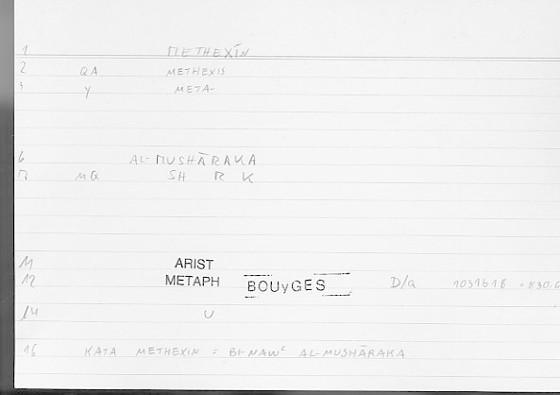 1 METHEXIN
2 QA METHEXIS
3 Y META-
6 AL-MUSHĀRAKA
7 MQ SH R K
11 ARIST
12 METAPH BOUyGES D/a 1031b18
14 U
16 KATA METHEXIN = BI-NAWᶜ AL-MUSHĀRAKA